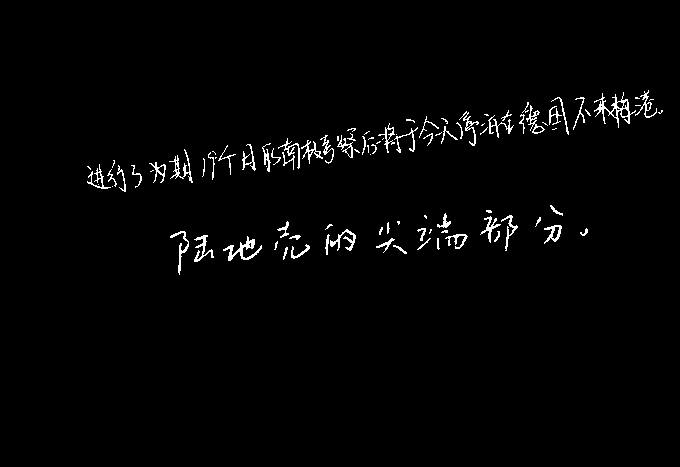 进行了为期19个月的南极考察后将于今天停泊在德国不来梅港.
陆地壳的尖端部分。